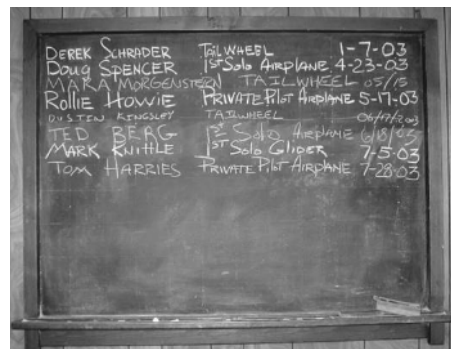 DEREK SCHRADER TAILWHEEL 1-7-03
Doug SPENCER 1ST Solo AIRPLANE 4-23-03
MARA MORGENSTERN TAILWHEEL 05/15
Rollie Howie PRIVATE Pilot AIRPLANE 5-17-03
DUSTIN KINGSLEY TAILWHEEL 06/17/2003
TED BERG 1ST Solo AIRPLANE 6/18/03
MARK KNITTLE 1ST Solo GLIDER 7-5-03
TOM HARRIES PRIVATE Pilot AIRPLANE 7-28-03